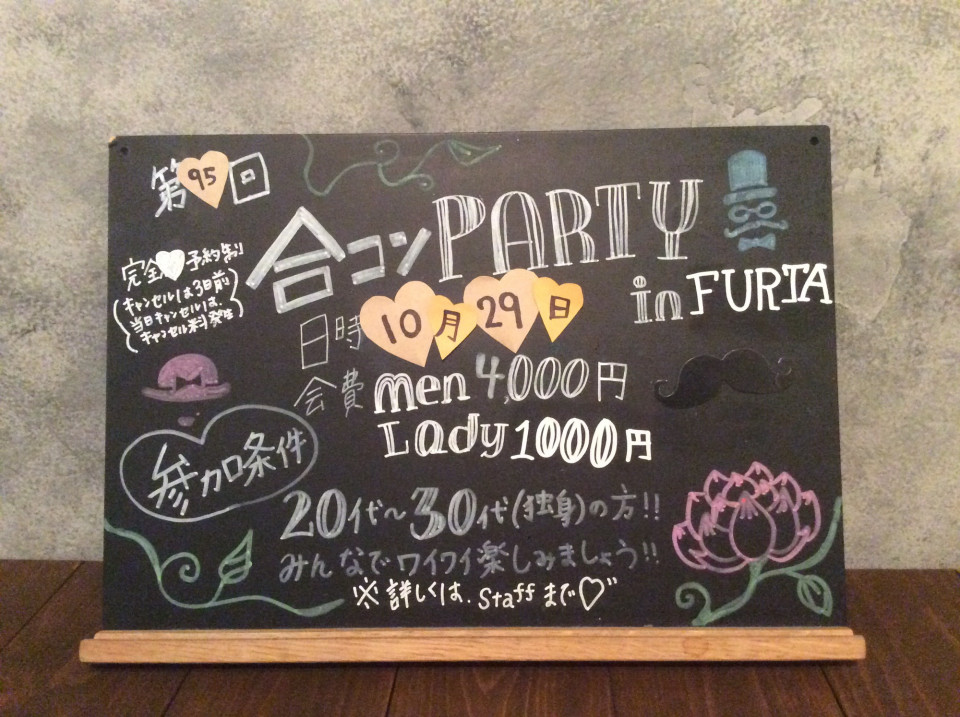 第95回
合コンPARTY
in FURTA
完全予約制
(キャンセルは3日前
当日キャンセルは、
キャンセル料発生)
日時 10月29日
会費 men 4,000円
Lady 1000円
参加条件
20代～30代(独身)の方!!
みんなでワイワイ楽しみましょう!!
※詳しくは、Staffまで♡